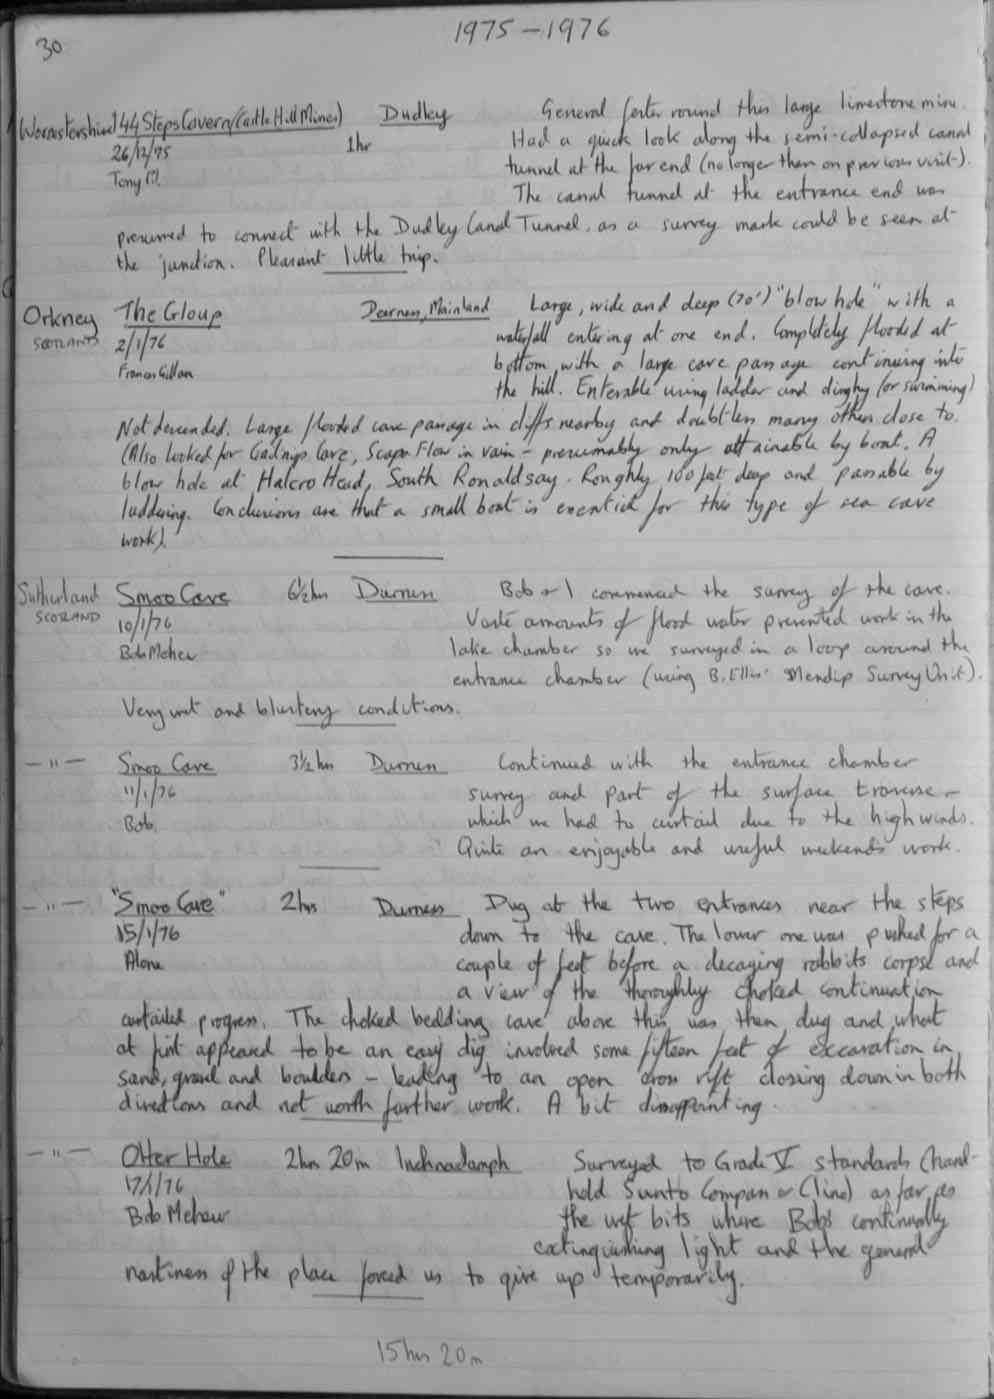 30
1975 - 1976
Worcestershire 44 Steps Cavern (Castle Hill Mines) Dudley General ferter round this large limestone mine.
26/12/75 1hr Had a quick look along the semi-collapsed canal
Tony M. tunnel at the far end (no longer than on previous visit).
The canal tunnel at the entrance end was
presumed to connect with the Dudley Canal Tunnel, as a survey mark could be seen at
the junction. Pleasant little trip.
Orkney The Gloup Deerness, Mainland Large, wide and deep (70') "blow hole" with a
SCOTLAND 2/1/76 waterfall entering at one end. Completely flooded at
Frances Gillan bottom with a large cave passage continuing into
the hill. Enterable using ladder and dinghy (or swimming)
Not descended. Large flooded cave passage in cliffs nearby and doubtless many others close to.
(Also looked for Cave, Scapa Flow in vain - presumably only attainable by boat. A
blow hole at Halcro Head, South Ronaldsay. Roughly 100 feet deep and passable by
laddering. Conclusions are that a small boat is essential for this type of sea cave
work).
Sutherland Smoo Cave 6½hrs Durness Bob & I commenced the survey of the cave.
SCOTLAND 10/1/76 Vaste amounts of flood water prevented work in the
Bob Mehew lake chamber so we surveyed in a loop around the
entrance chamber (using B. Ellis' Mendip Survey Unit).
Very wet and blustery conditions.
- " - Smoo Cave 3½ hrs Durness Continued with the entrance chamber
11/1/76 survey and part of the surface traverse -
Bob. which we had to curtail due to the high winds.
Quite an enjoyable and useful weekends work.
- " - "Smoo Cave" 2hrs Durness Dug at the two entrances near the steps
15/1/76 down to the cave. The lower one was pushed for a
Alone couple of feet before a decaying rabbits corpse and
a view of the thoroughly choked continuation
curtailed progress. The choked bedding cave above this was then dug and what
at first appeared to be an easy dig involved some fifteen feet of excavation in
sand, gravel and boulders - leading to an open cross rift closing down in both
directions and not worth further work. A bit disappointing.
- " - Otter Hole 2hrs 20m Inchnadamph Surveyed to Grade V standards (hand-
17/1/76 held Sunto Compass & Clino) as far as
Bob Mehew the wet bits where Bob's continually
extinguishing light and the general
nastiness of the place forced us to give up temporarily.
15hrs 20m